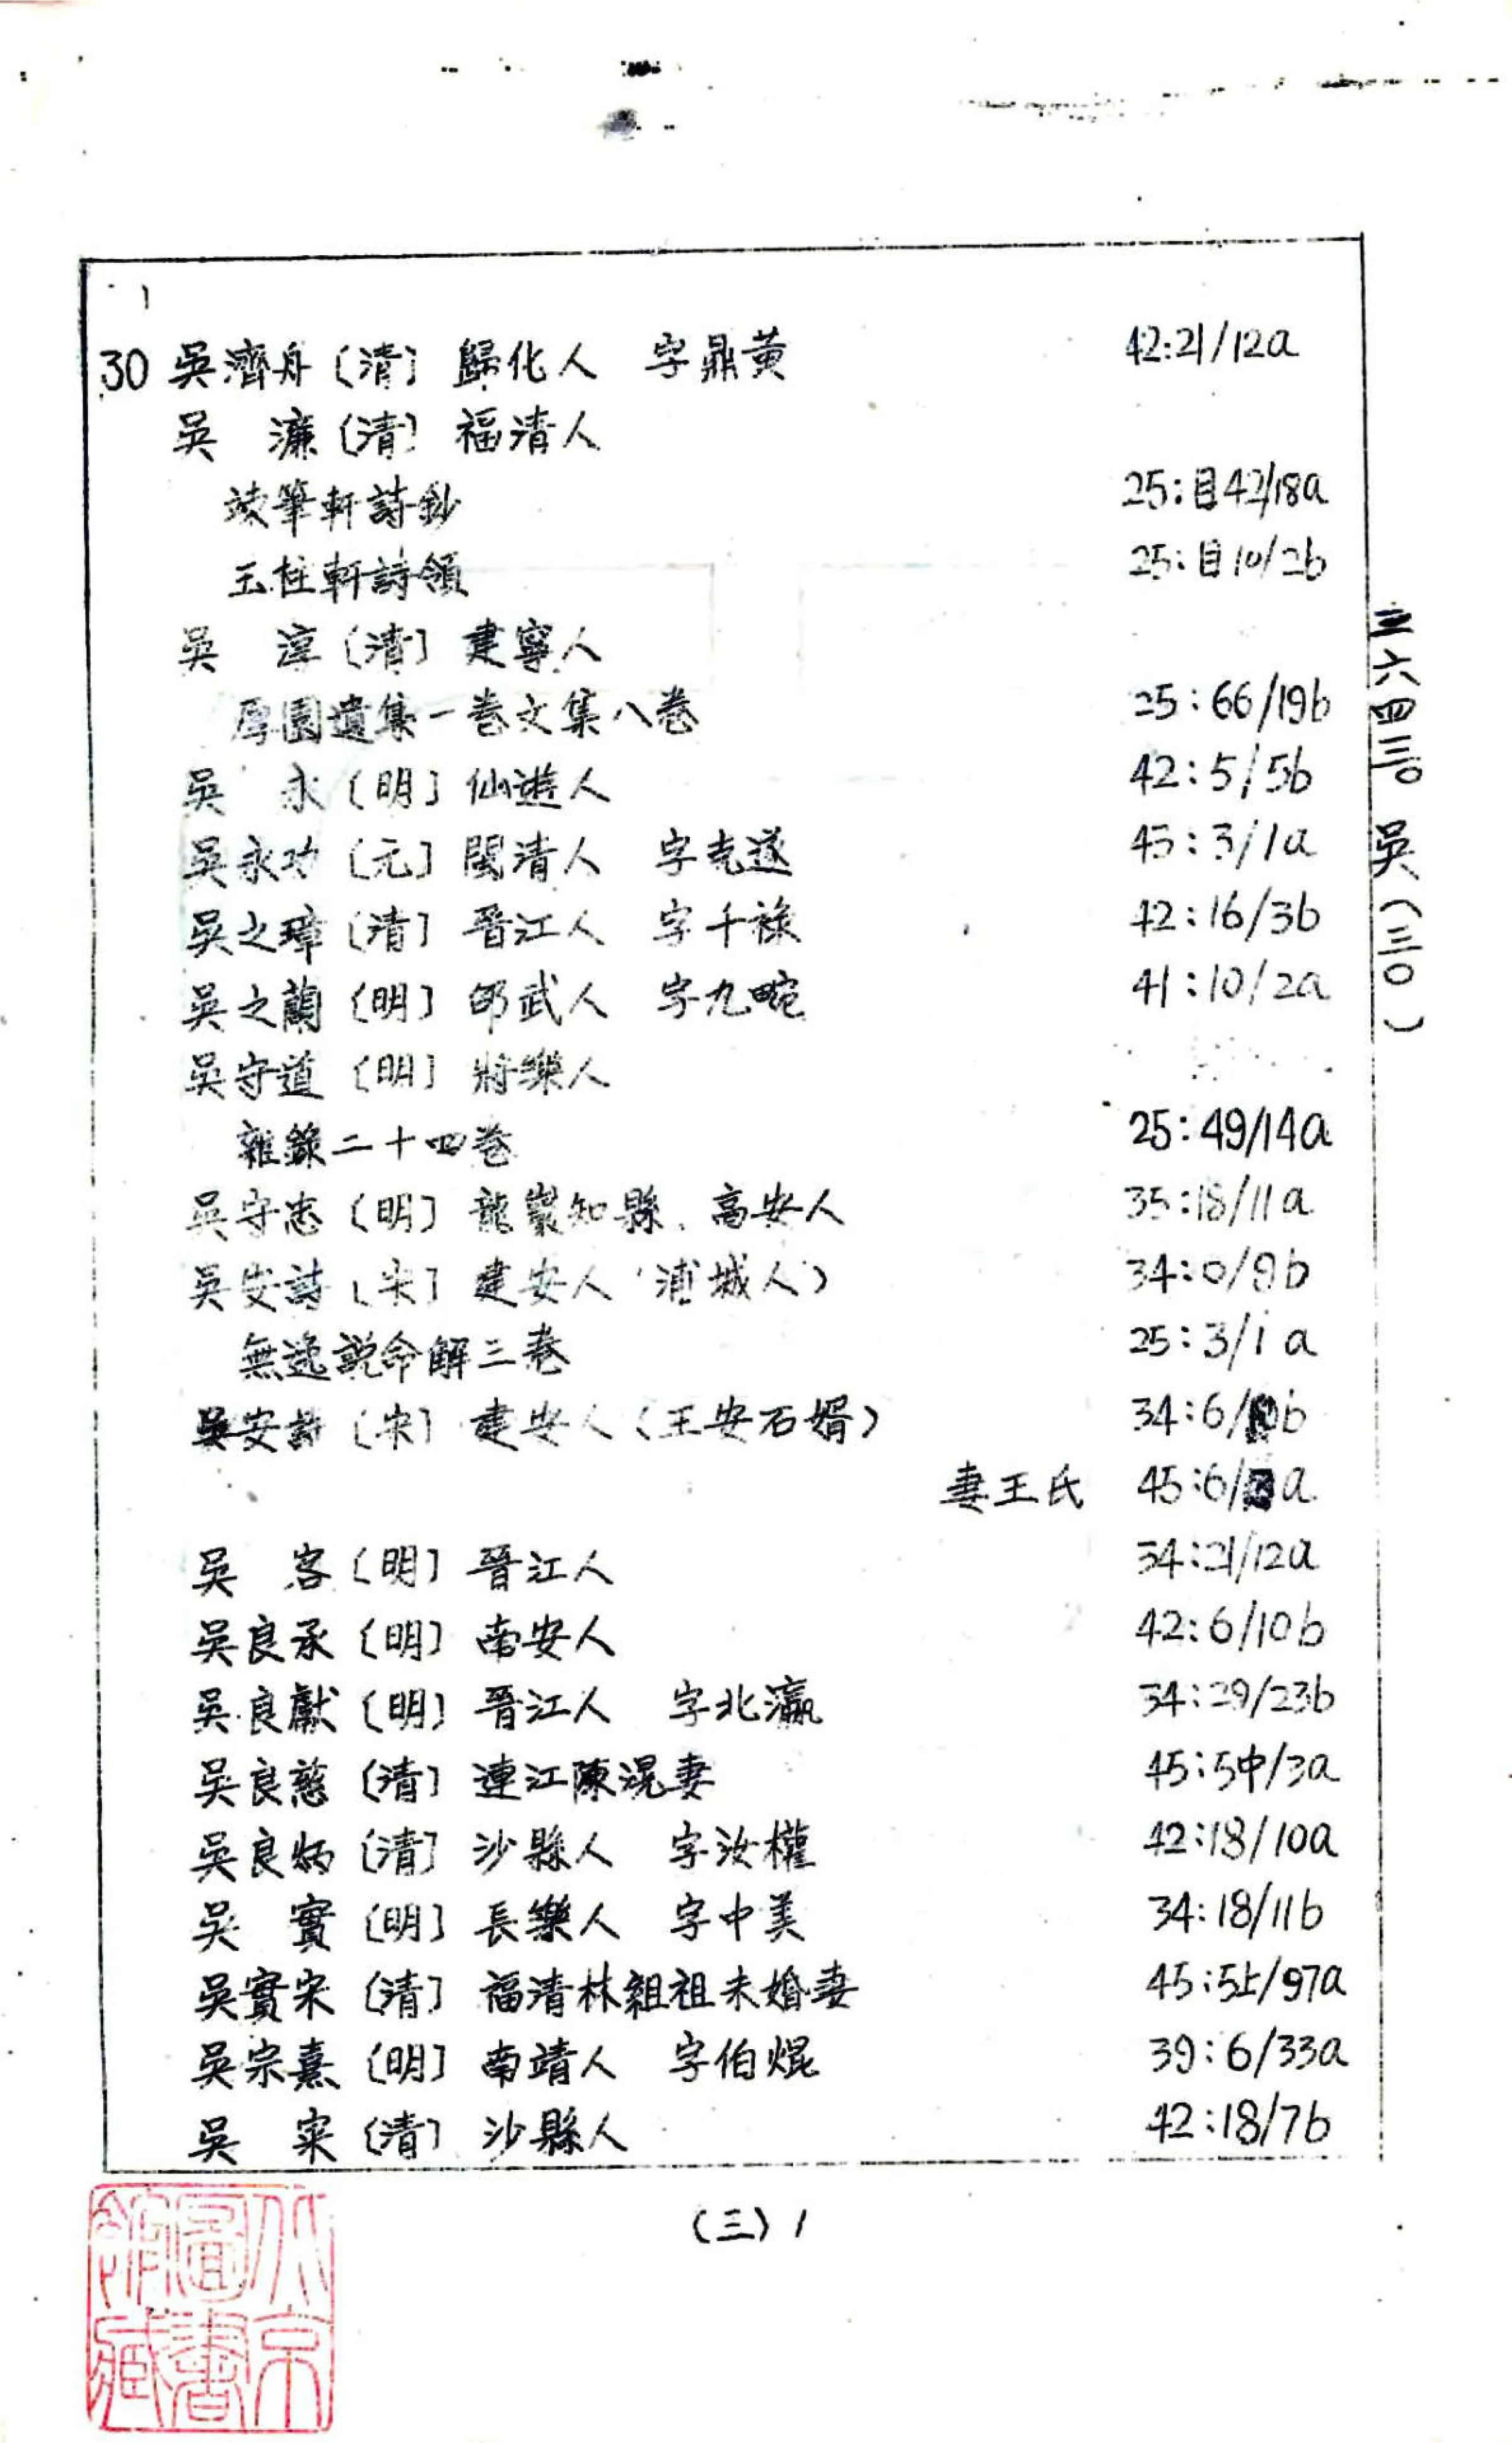 30 吳濟舟〔清〕歸化人 字鼎黃 42:21/12a
吳 濂〔清〕福清人
竢筆軒詩鈔 25:目42/18a
玉柱軒詩領 25:目10/2b
吳 淳〔清〕建寧人
厚園遺集一卷文集八卷 25:66/19b
吳 永〔明〕仙遊人 42:5/5b
吳永功〔元〕閩清人 字克遂 45:3/1a
吳之璋〔清〕晉江人 字千祿 42:16/3b
吳之蘭〔明〕邵武人 字九畹 41:10/2a
吳守道〔明〕將樂人
雜錄二十四卷 25:49/14a
吳守忠〔明〕龍巖知縣、高安人 35:18/11a
吳安詩〔宋〕建安人(浦城人) 34:0/9b
無逸說命解三卷 25:3/1a
吳安詩〔宋〕建安人(王安石婿) 34:6/b
妻王氏 45:6/a
吳 客〔明〕晉江人 34:21/12a
吳良承〔明〕南安人 42:6/10b
吳良獻〔明〕晉江人 字北瀛 34:29/23b
吳良慈〔清〕連江陳滉妻 45:5中/3a
吳良炳〔清〕沙縣人 字汝權 42:18/10a
吳 實〔明〕長樂人 字中美 34:18/11b
吳實宋〔清〕福清林組祖未婚妻 45:5上/97a
吳宗熹〔明〕南靖人 字伯焜 39:6/33a
吳 寀〔清〕沙縣人 42:18/7b
三六四三〇 吳(三〇)
(三)1
北京
圖書
館藏